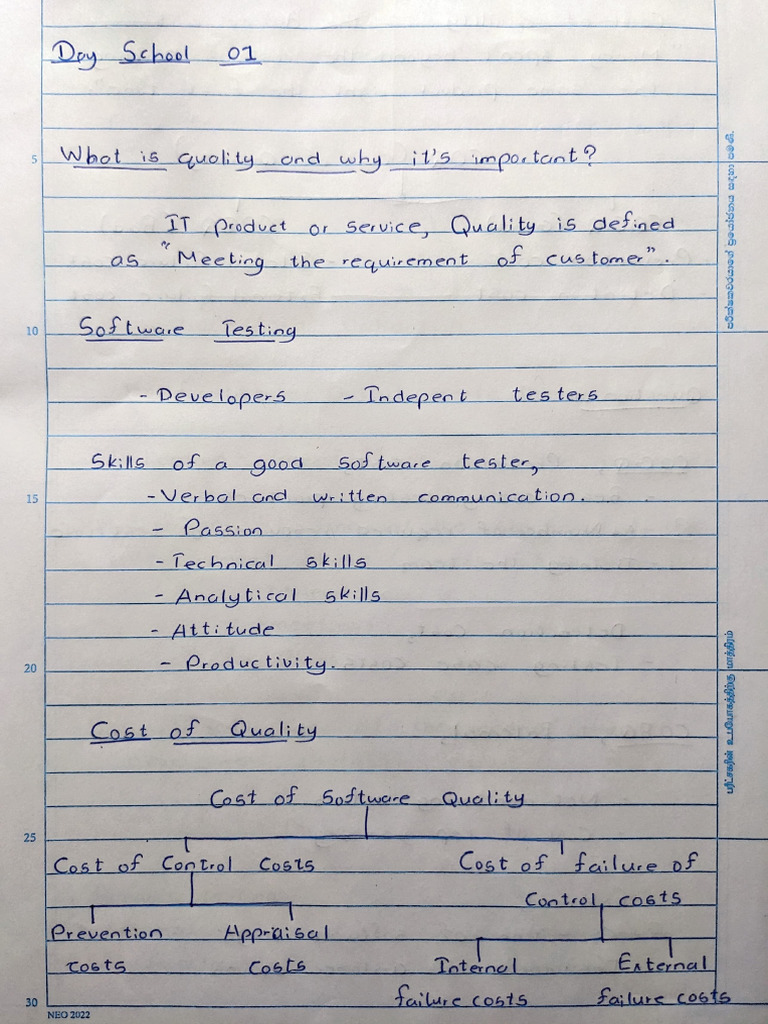 Day School 01
5
What is quality and why it's important?
IT product or service, Quality is defined
as "Meeting the requirement of customer".
10
Software Testing
- Developers - Indepent testers
Skills of a good software tester,
15
- Verbal and written communication.
- Passion
- Technical skills
- Analytical skills
- Attitude
20
- Productivity.
Cost of Quality
Cost of Software Quality
25
Cost of Control Costs Cost of failure of
Control costs
Prevention Appraisal
costs costs
Internal External
failure costs failure costs
30
NEO 2022
பரீட்சகரின் உபயோகத்திற்கு மாத்திரம்